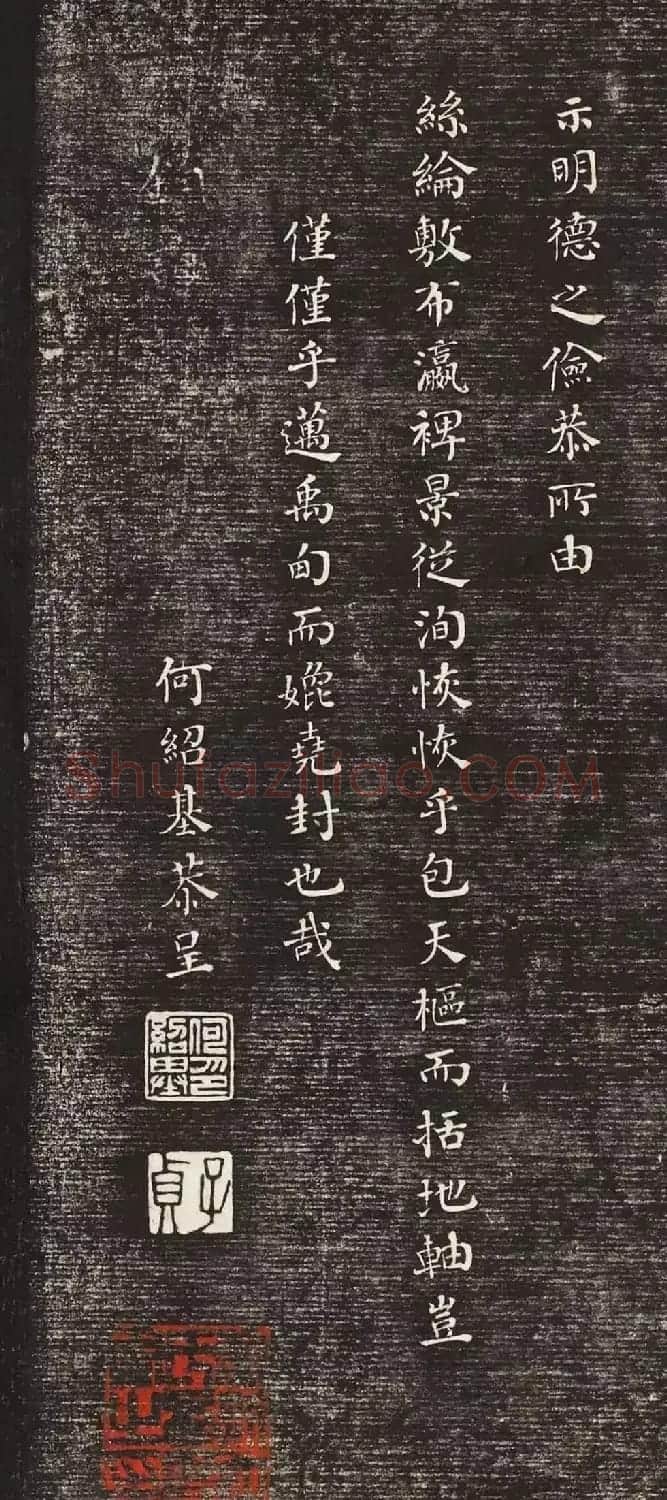 示明德之儉恭所由
絲綸敷布瀛裨景從洵恢恢乎包天樞而括地軸豈
僅僅乎邁禹甸而媲堯封也哉
何紹基恭呈
何紹基印
子貞
Shufaziliao.COM